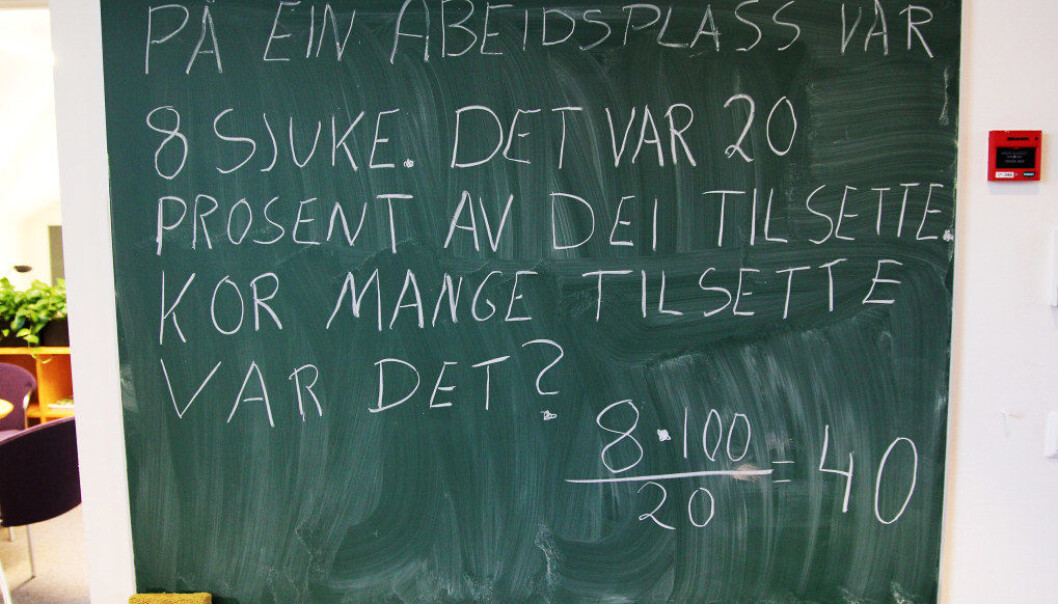 PÅ EIN ABEIDSPLASS VAR
8 SJUKE. DET VAR 20
PROSENT AV DEI TILSETTE.
KOR MANGE TILSETTE
VAR DET?
8·100
20
= 40